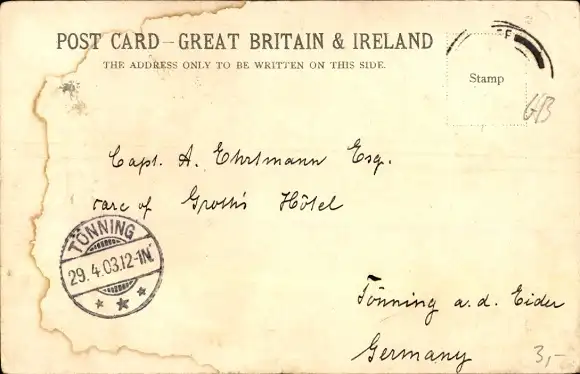 POST CARD — GREAT BRITAIN & IRELAND
THE ADDRESS ONLY TO BE WRITTEN ON THIS SIDE.
Stamp
GB
Capt. A. Ehrtmann Esq.
care of Groth's Hôtel
TÖNNING
29.4.03.12-1N.
Tönning a.d. Eider
Germany
3,-